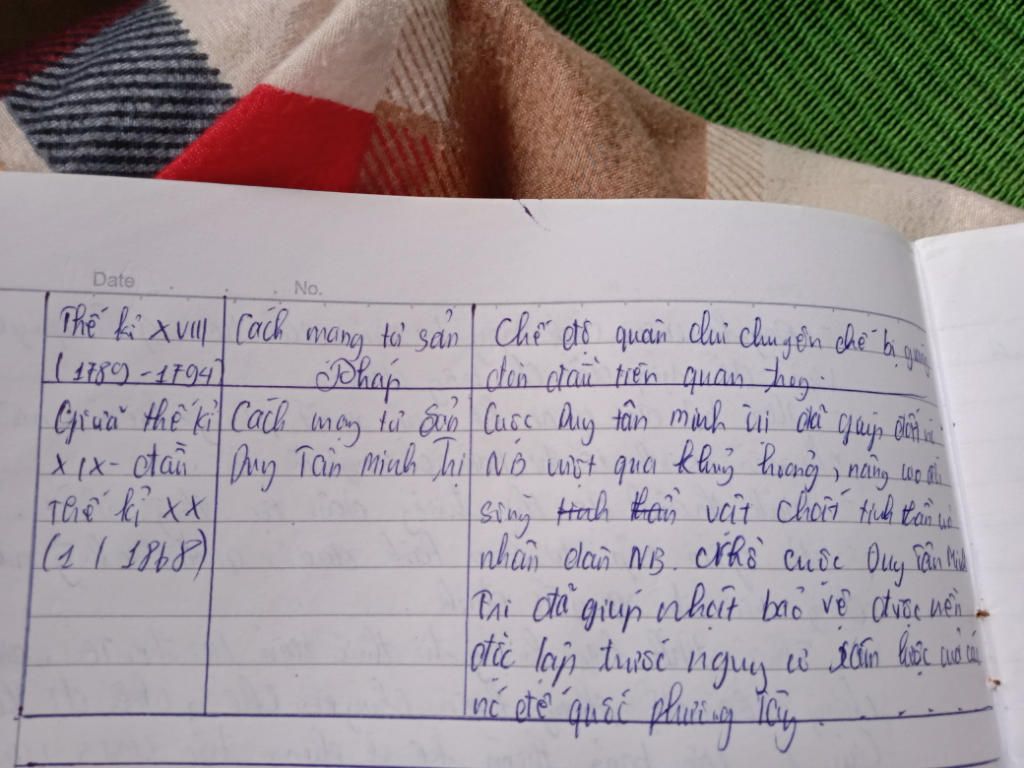 Date No.
Thế kỉ XVIII
(1789-1794)
Cách mạng tư sản
Pháp
Chế độ quân chủ chuyên chế bị
đòn đầu tiên quan
Giữa thế kỉ
XIX- đầu
Thế kỉ XX
(1/1868)
Cách mạng tư sản
Duy Tân Minh Trị
Cuộc Duy tân minh đã giúp
NB vượt qua khủng hoảng, nâng cao
sống tinh thần vật chất tinh thần
nhân dân NB. cuộc Duy Tân Minh
Trị đã giúp nhật bảo vệ được nền
độc lập trước nguy cơ xâm lược
nc đế quốc phương Tây